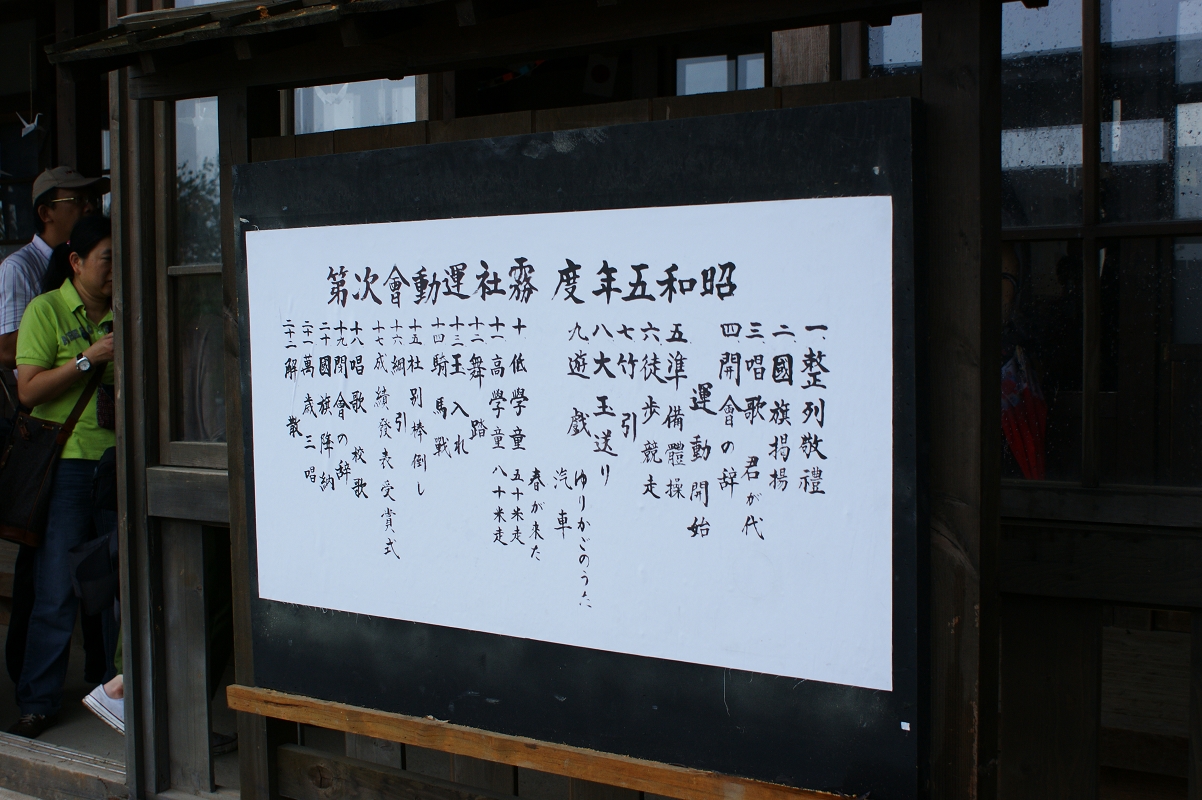 昭和五年度 霧社運動會次第
一、整列敬禮
二國旗掲揚
三唱歌 君が代
四開會の辞
運動開始
五準備體操
六徒歩競走
七竹引
八大玉送り
九遊戲 ゆりかごのうた
汽車
春が来た
十低學童 五十米走
十一高學童 八十米走
十二舞踏
十三玉入れ
十四騎馬戰
十五社別棒倒し
十六綱引
十七成績發表受賞式
十八唱歌 校歌
十九閉會の辞
二十國旗降納
二十一萬歳三唱
二十二解散